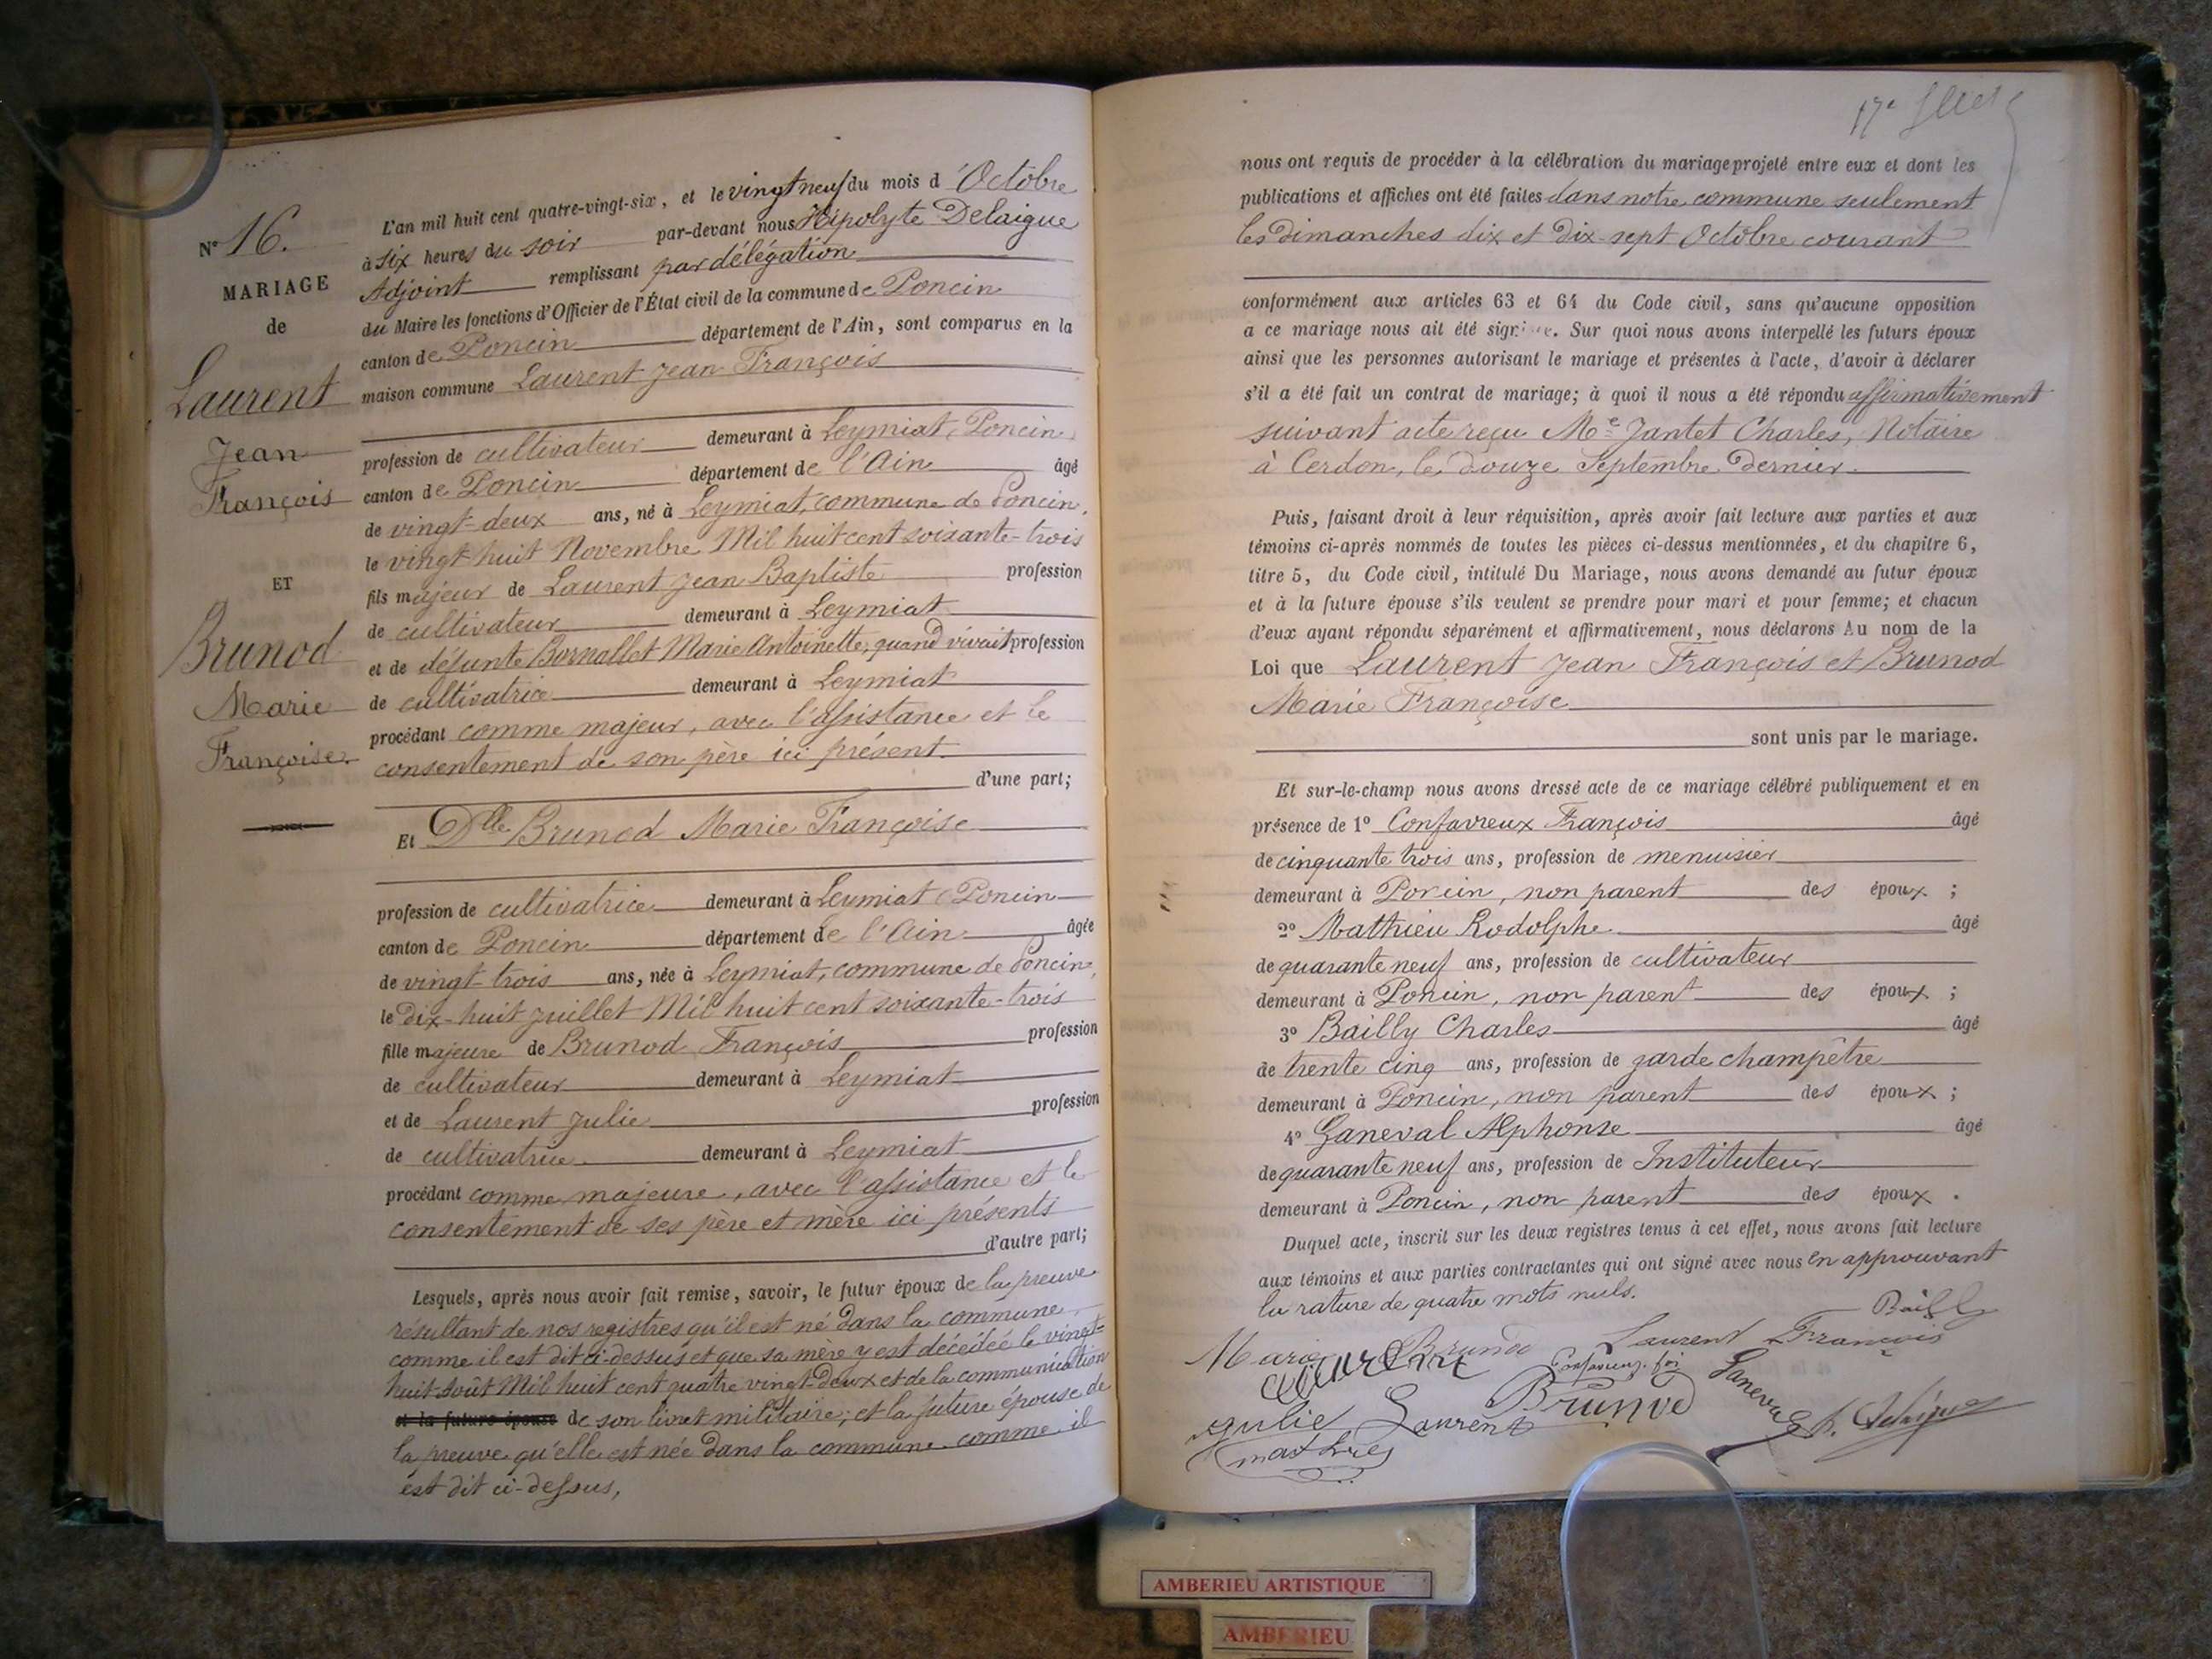 N° 16.
MARIAGE
de
Laurent
Jean
François
ET
Brunod
Marie
Françoise
L'an mil huit cent quatre-vingt-six, et le vingt neuf du mois d'Octobre
à six heures du soir par-devant nous Hipolyte Delaigue
Adjoint remplissant par délégation
du Maire les fonctions d'Officier de l'État civil de la commune de Poncin
canton de Poncin département de l'Ain, sont comparus en la
maison commune Laurent Jean François
profession de cultivateur demeurant à Leymiat, Poncin
canton de Poncin département de l'Ain âgé
de vingt-deux ans, né à Leymiat, commune de Poncin,
le vingt-huit Novembre Mil huit cent soixante-trois
fils majeur de Laurent Jean Baptiste profession
de cultivateur demeurant à Leymiat
et de défunte Bornallet Marie Antoinette, quand vivait profession
de cultivatrice demeurant à Leymiat
procédant comme majeur, avec l'assistance et le
consentement de son père ici présent.
d'une part;
Et Dlle Brunod Marie Françoise
profession de cultivatrice demeurant à Leymiat Poncin
canton de Poncin département de l'Ain âgée
de vingt-trois ans, née à Leymiat, commune de Poncin,
le dix-huit juillet Mil huit cent soixante-trois
fille majeure de Brunod François profession
de cultivateur demeurant à Leymiat
et de Laurent Julie profession
de cultivatrice demeurant à Leymiat
procédant comme majeure, avec l'assistance et le
consentement de ses père et mère ici présents
d'autre part;
Lesquels, après nous avoir fait remise, savoir, le futur époux de la preuve
résultant de nos registres qu'il est né dans la commune
comme il est dit ci-dessus et que sa mère y est décédée le vingt-
huit août Mil huit cent quatre vingt-deux et de la communication
et la future épouse de son livret militaire; et la future épouse de
la preuve qu'elle est née dans la commune comme il
est dit ci-dessus,
17e
nous ont requis de procéder à la célébration du mariage projeté entre eux et dont les
publications et affiches ont été faites dans notre commune seulement
les dimanches dix et dix-sept Octobre courant
conformément aux articles 63 et 64 du Code civil, sans qu'aucune opposition
a ce mariage nous ait été signifiée. Sur quoi nous avons interpellé les futurs époux
ainsi que les personnes autorisant le mariage et présentes à l'acte, d'avoir à déclarer
s'il a été fait un contrat de mariage; à quoi il nous a été répondu affirmativement
suivant acte reçu Me Jantet Charles, Notaire
à Cerdon, le douze Septembre dernier.
Puis, faisant droit à leur réquisition, après avoir fait lecture aux parties et aux
témoins ci-après nommés de toutes les pièces ci-dessus mentionnées, et du chapitre 6,
titre 5, du Code civil, intitulé Du Mariage, nous avons demandé au futur époux
et à la future épouse s'ils veulent se prendre pour mari et pour femme; et chacun
d'eux ayant répondu séparément et affirmativement, nous déclarons Au nom de la
Loi que Laurent Jean François et Brunod
Marie Françoise
sont unis par le mariage.
Et sur-le-champ nous avons dressé acte de ce mariage célébré publiquement et en
présence de 1° Confavreux François âgé
de cinquante trois ans, profession de menuisier
demeurant à Poncin, non parent des époux ;
2° Mathieu Rodolphe âgé
de quarante neuf ans, profession de cultivateur
demeurant à Poncin, non parent des époux ;
3° Bailly Charles âgé
de trente cinq ans, profession de garde champêtre
demeurant à Poncin, non parent des époux ;
4° Ganeval Alphonse âgé
de quarante neuf ans, profession de Instituteur
demeurant à Poncin, non parent des époux .
Duquel acte, inscrit sur les deux registres tenus à cet effet, nous avons fait lecture
aux témoins et aux parties contractantes qui ont signé avec nous en approuvant
la rature de quatre mots nuls.
Bailly
Marie Brunod Laurent François
Confavreux fois
Ganeval
Brunod
Julie Laurent
h. Delaigue
mathieu
AMBERIEU ARTISTIQUE
AMBERIEU